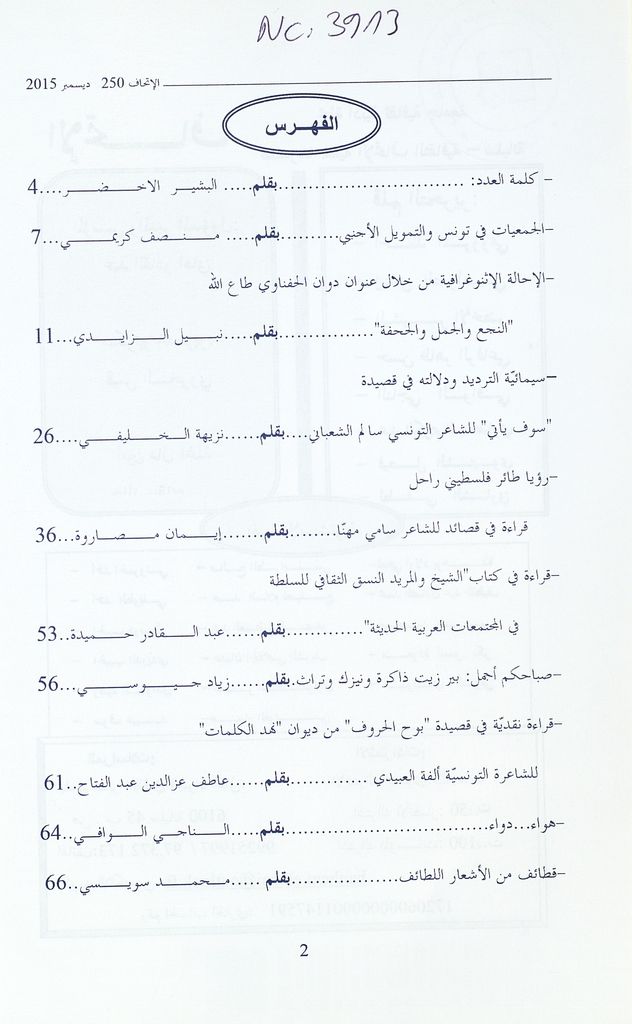 NC. 3913
الإتحاف 250 ديسمبر 2015
الفهـرس
- كلمة العدد: ..................................بقلم..... البشير الاخـــضـــر....4
-الجمعيات في تونس والتمويل الأجنبي..........بقلم..... مــنــصف كريمـــي...7
-الإحالة الإثنوغرافية من خلال عنوان دوان الحفناوي طاع الله
"النجع والجمل والجحفة"................بقلم.....نبــيــل الــزايــدي...11
-سيمائيّة الترديد ودلالته في قصيدة
"سوف يأتي" للشاعر التونسي سالم الشعباني....بقلم......نزيهة الــخــليفــي....26
-رؤيا طائر فلسطيني راحل
قراءة في قصائد للشاعر سامي مهنّا........بقلم.......إيــمــان مــصــاروة...36
-قراءة في كتاب"الشيخ والمريد النسق الثقافي للسلطة
في المجتمعات العربية الحديثة"............بقلم......عبد الــقــادر حــميدة..53
-صباحكم أجمل: بير زيت ذاكرة ونيزك وتراث.بقلم......زياد جــيــوســي...56
-قراءة نقديّة في قصيدة "بوح الحروف" من ديوان "نهد الكلمات"
للشاعرة التونسيّة ألفة العبيدي ............بقلم......عاطف عزالدين عبد الفتاح..61
-هواء...دواء............................بقلم......الــناجي الــوافــي..64
-قطائف من الأشعار اللطائف..............بقلم .....محــمــد سويــســي..66
2